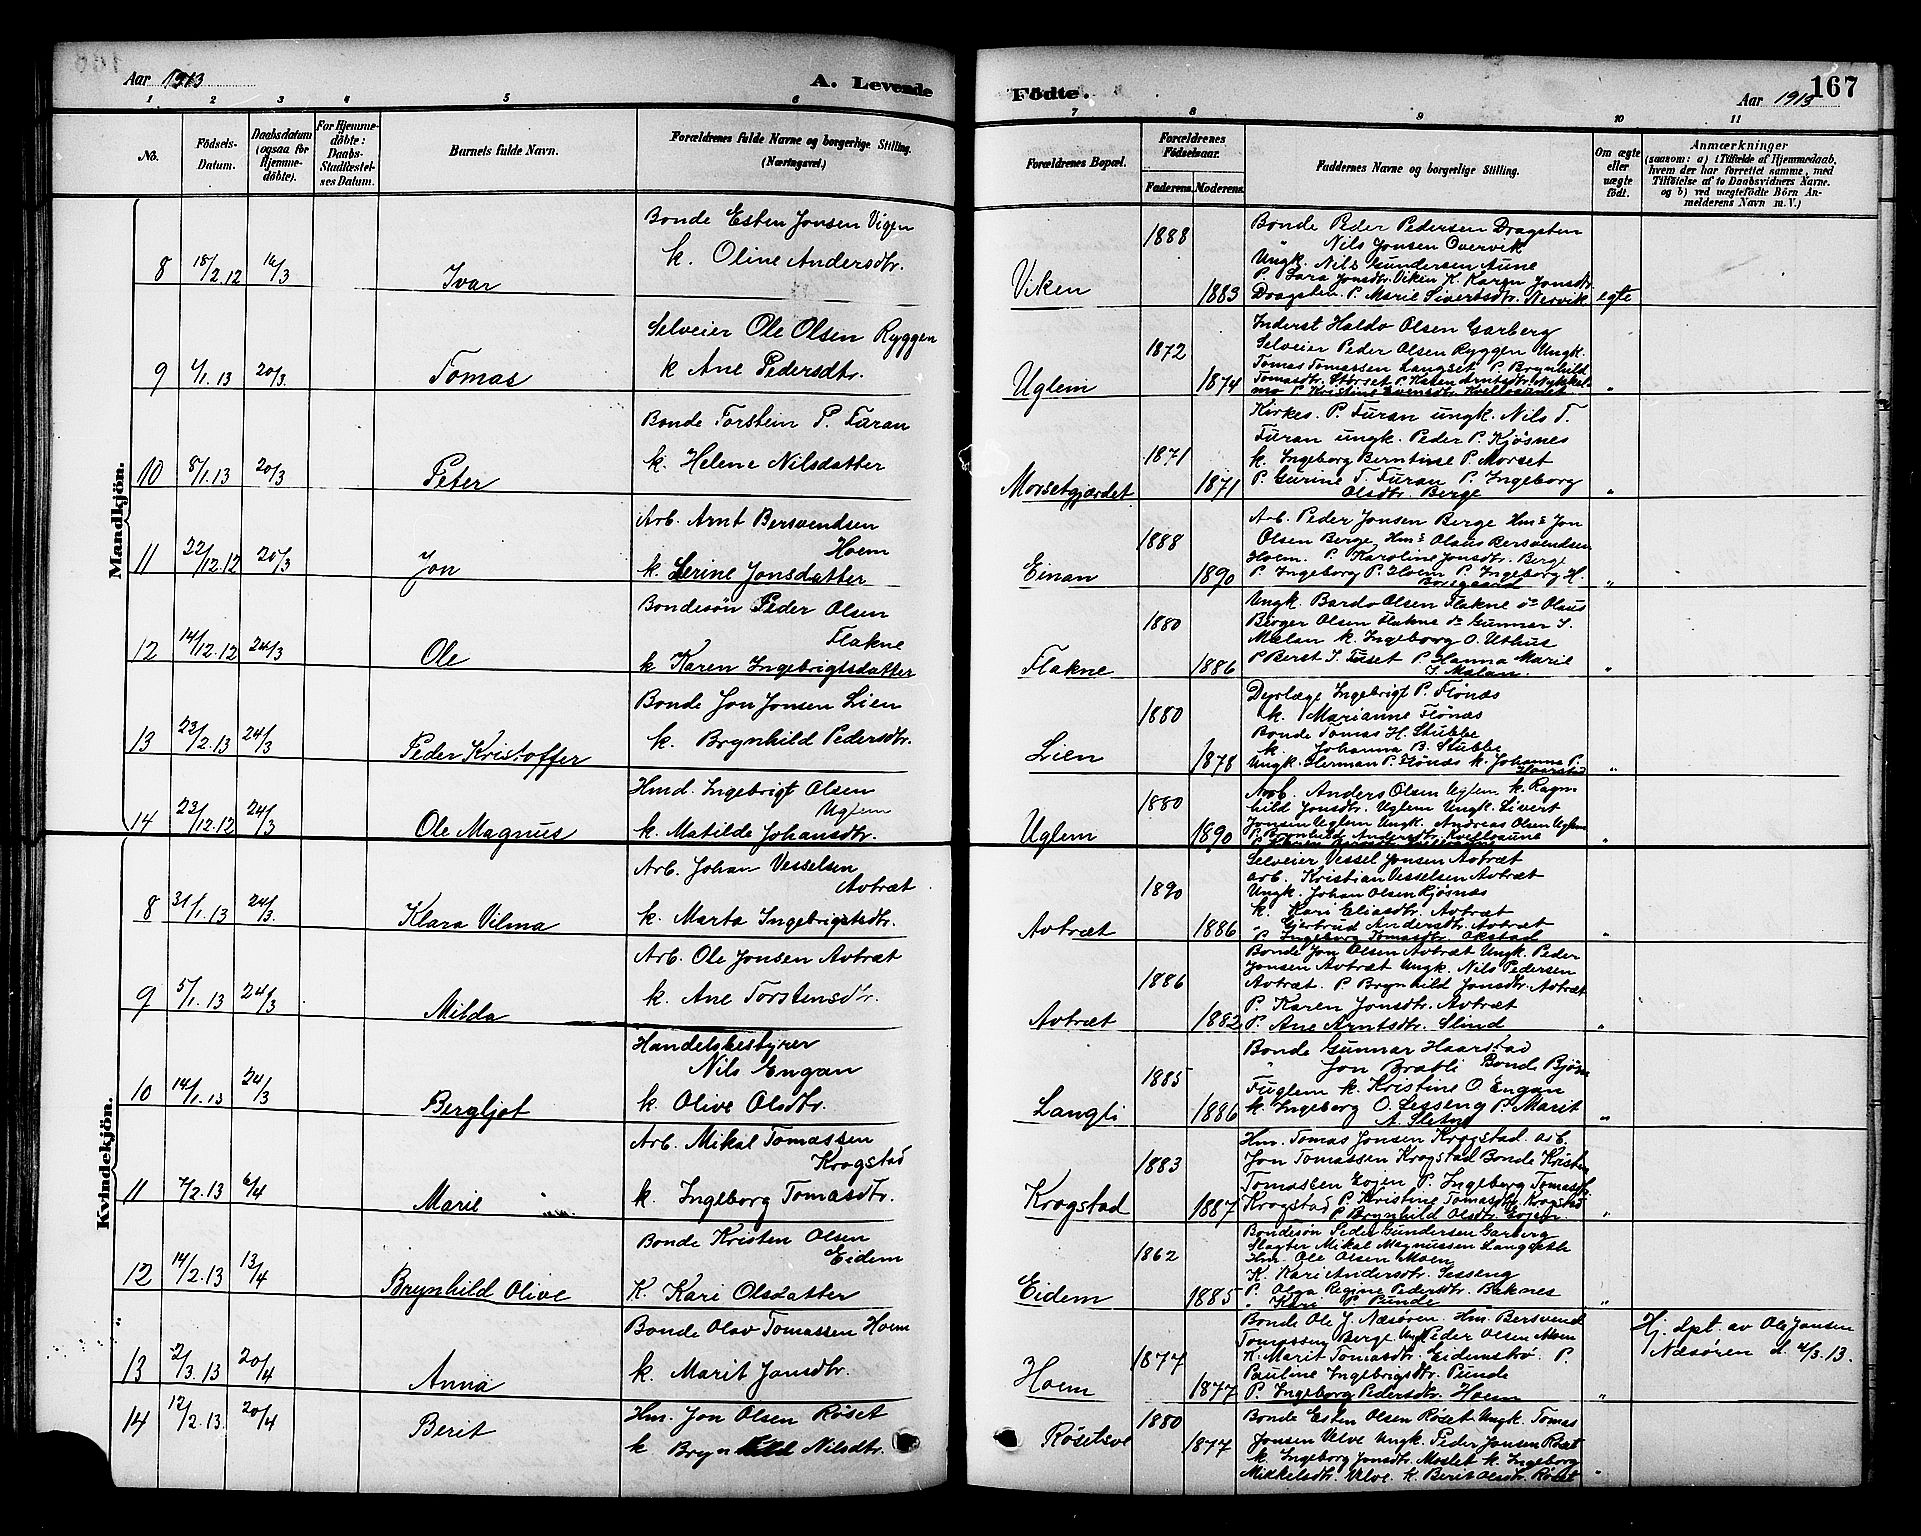 Aar 1913
A. Levende Födte.
Aar 1913
167
1 2 3 4 5 6 7 8 9 10 11
No.
Födsels-Datum.
Daabsdatum (ogsaa for Hjemmedöbte).
For Hjemmedöbte: Daabs-Stadfæstelses Datum.
Barnets fulde Navn.
Forældrenes fulde Navne og borgerlige Stilling. (Næringsvei.)
Forældrenes Bopæl.
Forældrenes Födselsaar.
Faderens. Moderens.
Faddernes Navne og borgerlige Stilling.
Om ægte eller uægte födt.
Anmærkninger
(saasom: a) i Tilfælde af Hjemmedaab, hvem der har forrettet samme, med Tilföielse af to Daabsvidners Navne, og b) ved uægtefödte Börn Anmelderens Navn m. V.)
Mandkjön.
8 18/2.12 16/3 Ivar
Bonde Esten Jonsen Vigen
k. Oline Andersdtr.
Viken 1888 1883
Bonde Peder Pedersen Dragsten
Nils Jonsen Overvik
Ungk. Nils Gundersen Aune
P. Sara Jonsdtr. Viken K. Karen Jonsdtr.
Dragsten. P. Marie Sivertsdtr. Nervik
egte
9 4/1.13 20/3. Tomas
Selveier Ole Olsen Ryggen
k Ane Pedersdtr.
Uglem 1872 1874
Inderst Haldo Olsen Garberg
Selveier Peder Olsen Ryggen Ungk.
Tomas Tomassen Langset P. Brynhild
Tomasdtr. Storset P. Karen Arntsdtr.
P. Kristine Svensdtr. Kvelloaunet
"
10 8/1.13 20/3 Peter
Bonde Torstein P. Furan
k. Helene Nilsdatter
Morsetgjærdet 1871 1871
Kirkes. P. Furan ungk. Nils T.
Furan ungk. Peder P. Kjøsnes
k. Ingeborg Berntine P. Morset
P. Gurine T. Furan P. Ingeborg
Olsdtr. Berge
"
11 22/12.12 20/3 Jon
Arb. Arnt Bersvendsen
Hoem
k. Serine Jonsdatter
Einan 1888 1890
Arb. Peder Jonsen Berge Hm. Jon
Olsen Berge. Hm. Olaus Bersvendsen
Hoem. P. Karoline Jonsdtr. Berge
P. Ingeborg P. Hoem P. Ingeborg H.
Boregaard
"
12 14/12.12 24/3 Ole
Bondesøn Peder Olsen
Flakne
k Karen Ingebrigtsdatter
Flakne 1880 1886
Ungk. Bardo Olsen Flakne do Olaus
Berger Olsen Flakne do Gunnar J.
Mælan k. Ingeborg O. Uthus
P Beret J. Tuset P. Hanna Marie
J. Mælan.
"
13 22/2.13 24/3 Peder Kristoffer
Bonde Jon Jonsen Lien
k. Brynhild Pedersdtr.
Lien 1880 1878
Dyrlæge Ingebrigt P. Flønæs
k. Marianne Flönæs
Bonde Tomas H. Stubbe
k. Johanna B. Stubbe
Ungk. Herman P. Flønæs k. Johanna P.
Haarstad
"
14 23/12.12 24/3 Ole Magnus
Hmd. Ingebrigt Olsen
Uglem
k. Matilde Johansdtr.
Uglem 1880 1890
Arb. Anders Olsen Uglem. k. Ragnhild
Jonsdtr. Uglem Ungk. Sivert
Jonsen Uglem Ungk. Andreas Olsen Uglem
P. Brynhild Andersdtr. Kvelloaune
"
Kvindekjön.
8 31/1.13 24/3. Klara Vilma
Arb. Johan Vesselsen
Avtræt
k. Marta Ingebrigtsdtr.
Avtræt 1890 1886
Selveier Vessel Jonsen Avtræt
arb. Kristian Vesselsen Avtræt
Ungk. Johan Olsen Kjøsnæs
k. Kari Eliasdtr. Avtræt
" Gjertrud Andersdtr. Avtræt
P. Ingeborg Tomasdtr. Okstad
"
9 5/1.13 24/3 Milda
Arb. Ole Jonsen Avtræt
k. Ane Torstensdtr.
Avtræt 1886 1882
Bonde Jon Olsen Avtræt Ungk. Peder
Jonsen Avtræt Ungk. Nils Pedersen
Avtræt. P Brynhild Jonsdtr. Avtræt
P. Karen Jonsdtr. Avtræt
P. Ane Arntsdtr. Slind
"
10 14/1.13 24/3 Bergljot
Handelsbestyrer
Nils Engan
k. Olive Olsdtr.
Langli 1885 1886
Bonde Gunnar Haarstad
" Jon Bratli Bonde Bjørn
Fuglem k. Kristine O. Engan
k. Ingeborg O. Sesseng P. Marit
A. Sletne
"
11 7/2.13 6/4 Marie
Arb. Mikal Tomassen
Krogstad
k. Ingeborg Tomasdtr.
Krogstad 1883 1887
Hm. Tomas Jonsen Krogstad. arb.
Jon Tomassen Krogstad Bonde Kristen
Tomassen Evjen P. Ingeborg Tomasdtr.
Krogstad P. Kristine Tomasdtr. Krogstad
P Brynhild Olsdtr. Evjen
"
12 14/2.13 13/4 Brynhild Olive
Bonde Kristen Olsen
Eidem
K. Kari Olsdatter
Eidem 1862 1885
Bondesøn Peder Gundersen Garberg
Slagter Mikal Magnussen Langseth
Hm. Ole Olsen Moen
K. Kari Andersdtr. Sesseng
P. Olga Regine Pedersdtr. Baknes
" Kari P. Punde
"
13 2/3.13 20/4 Anna
Bonde Olav Tomassen Hoem
k. Marit Jonsdtr.
Hoem 1877 1877
Bonde Ole J. Næsøren. Hm. Bersvend
Tomassen Berge Ungk Peder Olsen Moen
K. Marit Tomasdtr. Eidemstrø. P.
Pauline Ingebrigtsdtr. Punde
P. Ingeborg Pedersdtr. Hoem
"
Hj. dpt. av Ole Jonsen
Næsøren d. 4/3.13.
14 12/2.13. 20/4 Berit
Hm. Jon Olsen Røset
k Brynhild Nilsdtr.
Røsetsve 1880 1877
Bonde Esten Olsen Røset Ungk. Tomas
Jonsen Ulve Ungk. Peder Jonsen Røset
k. Ingeborg Jonsdtr. Moslet k. Ingeborg
Mikkelsdtr. Ulve. k. Berit Olsdtr. Røset
"